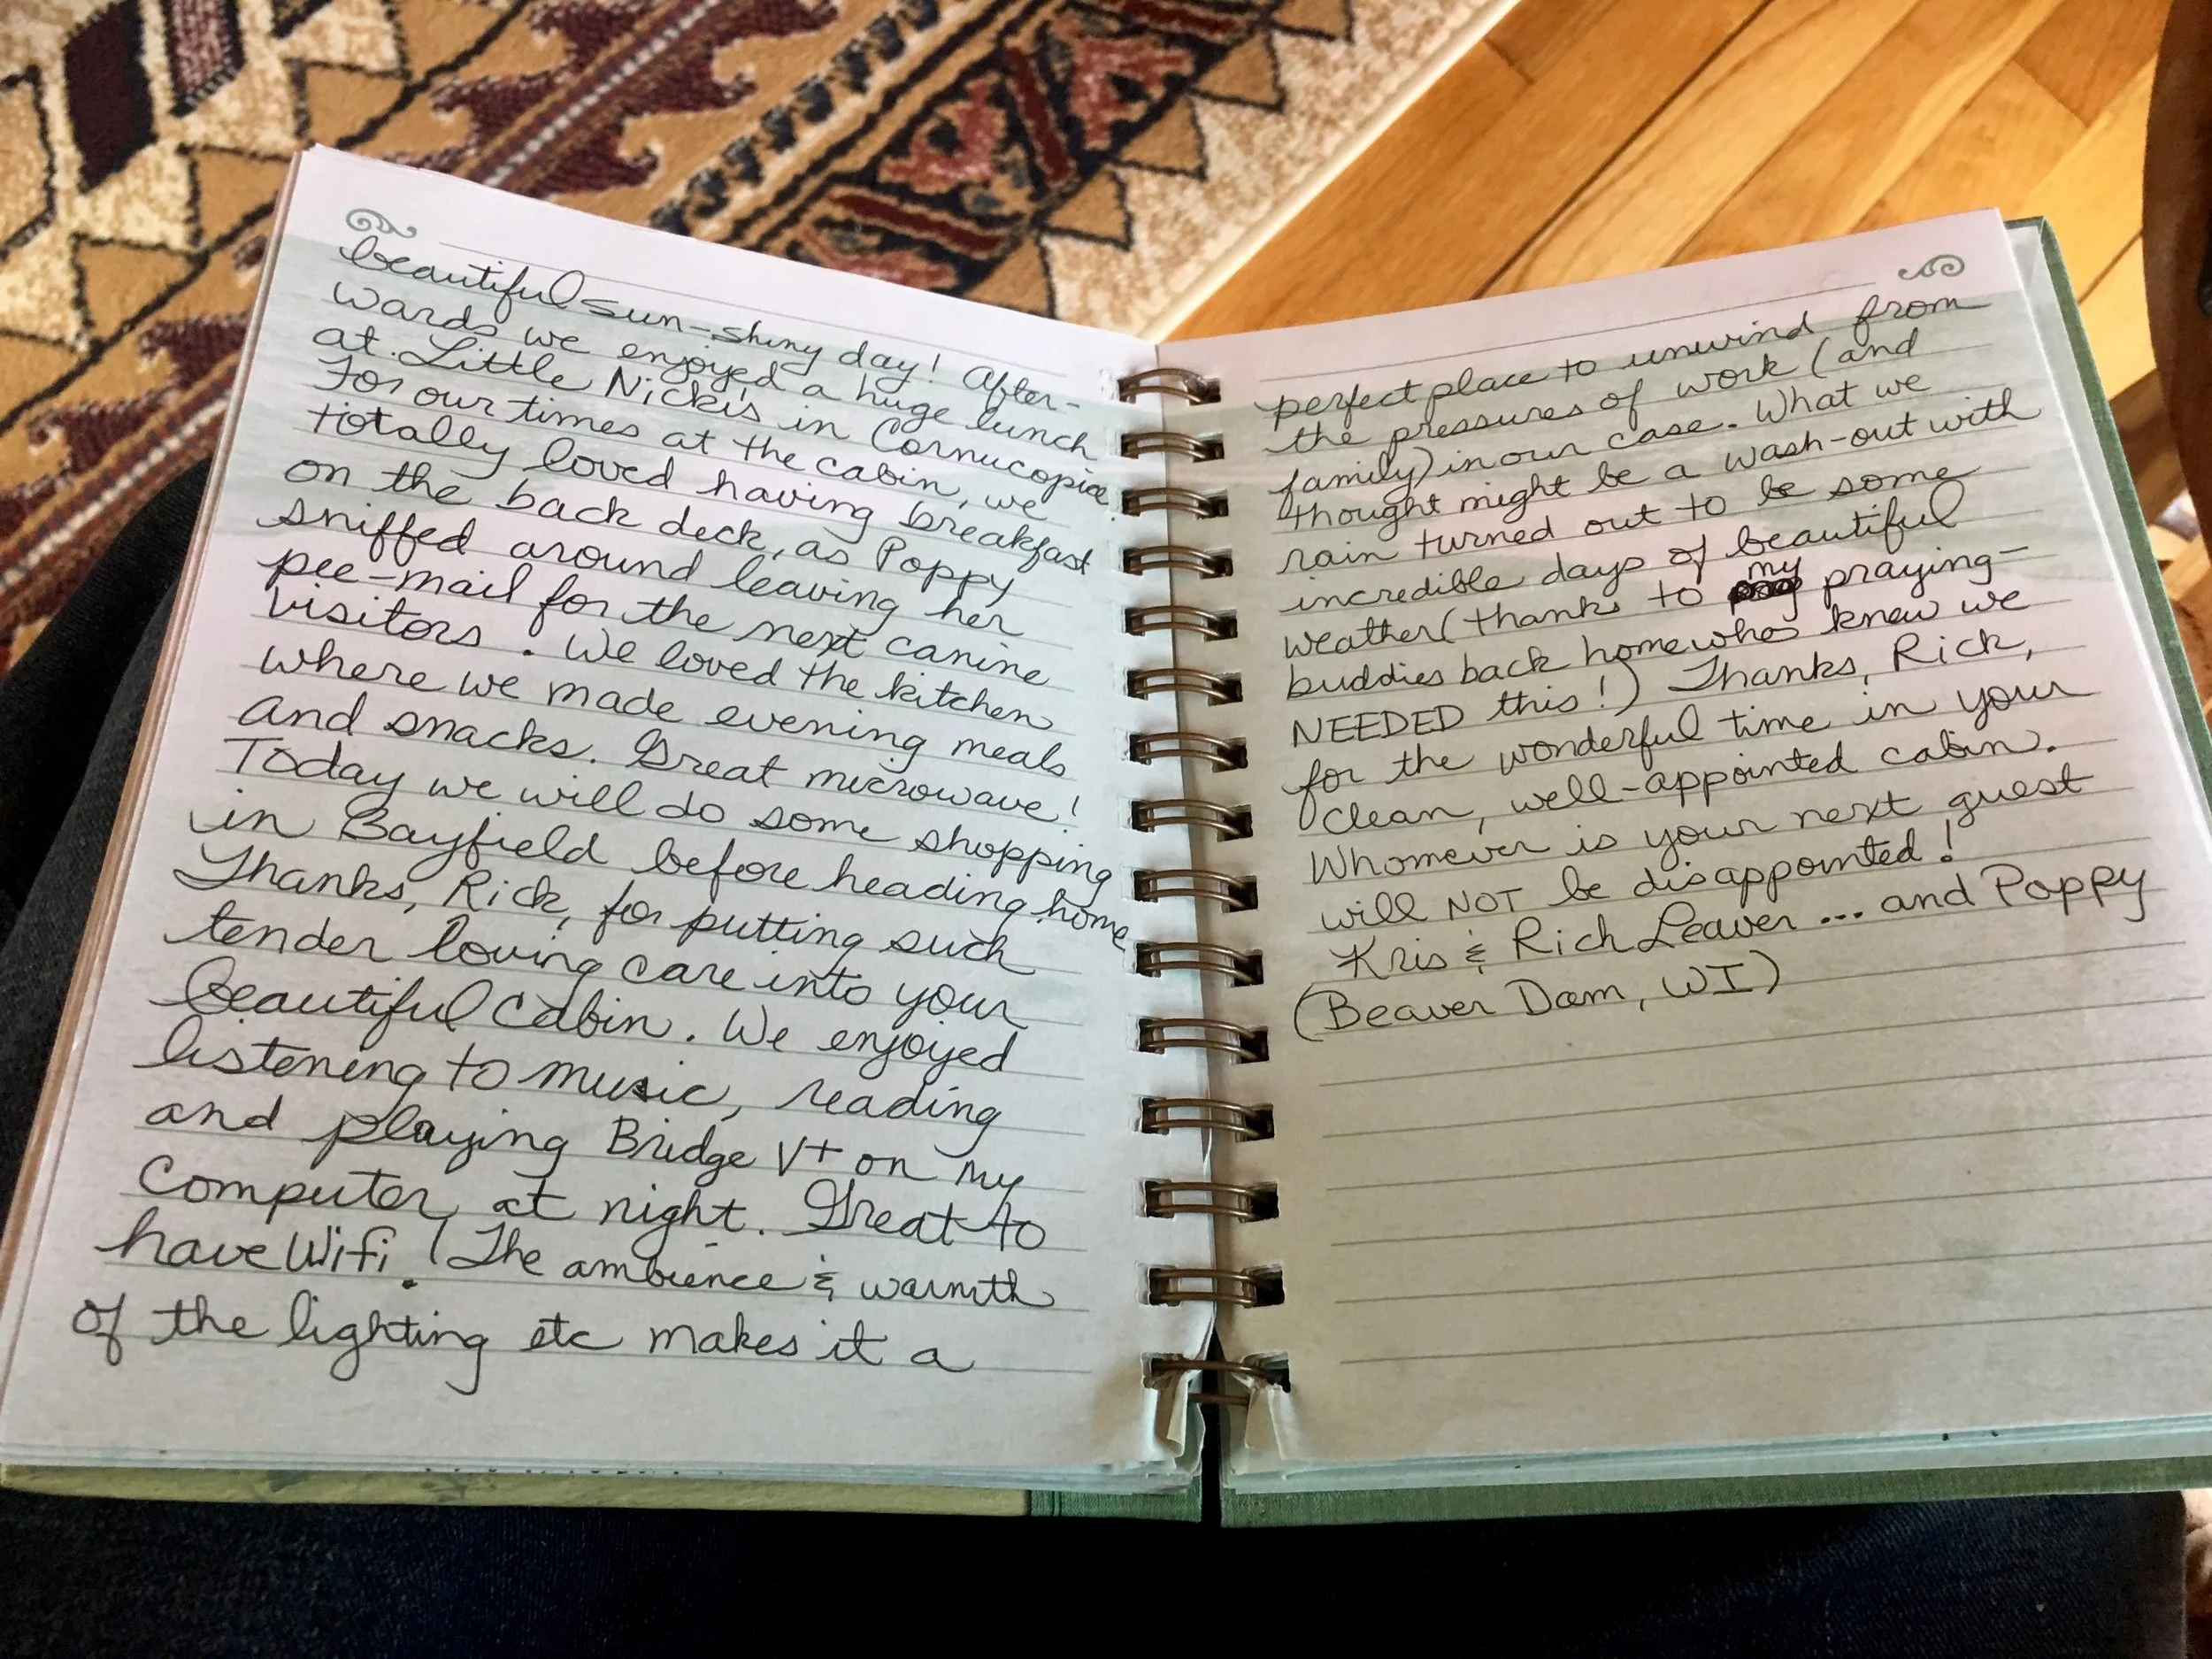 beautiful sun-shiny day! After-
wards we enjoyed a huge lunch
at Little Nicki's in Cornucopia.
For our times at the cabin, we
totally loved having breakfast
on the back deck, as Poppy
sniffed around leaving her
pee-mail for the next canine
visitors. We loved the kitchen
where we made evening meals
and snacks. Great microwave!
Today we will do some shopping
in Bayfield before heading home
Thanks, Rick, for putting such
tender loving care into your
beautiful cabin. We enjoyed
listening to music, reading
and playing Bridge V+ on my
computer at night. Great to
have Wifi! The ambience & warmth
of the lighting etc makes it a
perfect place to unwind from
the pressures of work (and
family) in our case. What we
thought might be a wash-out with
rain turned out to be some
incredible days of beautiful
weather (thanks to my praying-
buddies back home who knew we
NEEDED this!) Thanks, Rick,
for the wonderful time in your
clean, well-appointed cabin.
Whomever is your next guest
will NOT be disappointed!
Kris & Rich Leaver ... and Poppy
(Beaver Dam, WI)